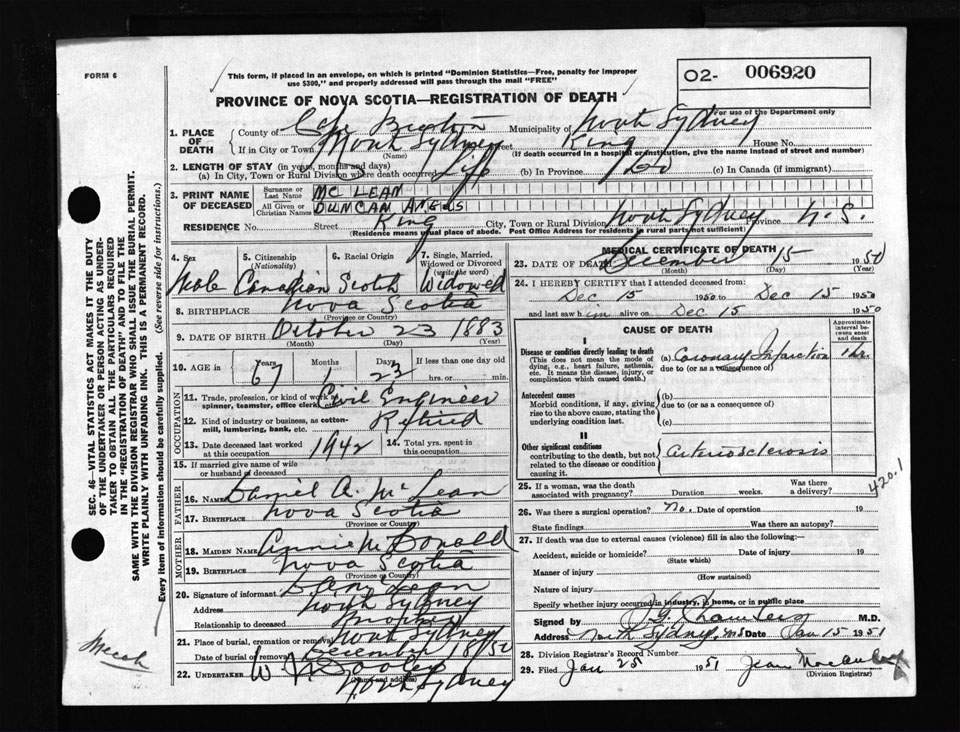 FORM 6
This form, if placed in an envelope, on which is printed "Dominion Statistics—Free, penalty for improper
use $300," and properly addressed will pass through the mail "FREE"
O2- 006920
For use of the Department only
PROVINCE OF NOVA SCOTIA—REGISTRATION OF DEATH
1. PLACE OF DEATH County of Cape Breton Municipality of North Sydney
If in City or Town North Sydney Street King House No.
(Name) (If death occurred in a hospital or institution, give the name instead of street and number)
2. LENGTH OF STAY (in years, months and days)
(a) In City, Town or Rural Division where death occurred Life (b) In Province (c) In Canada (if immigrant)
3. PRINT NAME OF DECEASED Surname or Last Name MC LEAN
All Given or Christian Names DUNCAN ANGUS
RESIDENCE No. Street King City, Town or Rural Division North Sydney Province N.S.
(Residence means usual place of abode. Post Office Address for residents in rural parts not sufficient)
4. Sex 5. Citizenship (Nationality) 6. Racial Origin 7. Single, Married, Widowed or Divorced (write the word)
Male Canadian Scotch Widowed
8. BIRTHPLACE Nova Scotia
(Province or Country)
9. DATE OF BIRTH October 23 1883
(Month) (Day) (Year)
10. AGE in Years Months Days If less than one day old
67 1 23 hrs. or min.
OCCUPATION
11. Trade, profession, or kind of work as spinner, teamster, office clerk Civil Engineer
12. Kind of industry or business, as cotton-mill, lumbering, bank, etc. Retired
13. Date deceased last worked at this occupation 1942 14. Total yrs. spent in this occupation
15. If married give name of wife or husband of deceased
FATHER
16. NAME Daniel A. McLean
17. BIRTHPLACE Nova Scotia
(Province or Country)
MOTHER
18. MAIDEN NAME Annie McDonald
19. BIRTHPLACE Nova Scotia
(Province or Country)
20. Signature of informant
Address North Sydney
Relationship to deceased
21. Place of burial, cremation or removal North Sydney
Date of burial or removal December 18/50
22. UNDERTAKER W. Dooley
(Name and address)
North Sydney
MEDICAL CERTIFICATE OF DEATH
23. DATE OF DEATH December 15 1950
(Month) (Day) (Year)
24. I HEREBY CERTIFY that I attended deceased from:
Dec 15 1950 to Dec 15 1950
and last saw him alive on Dec 15 1950
CAUSE OF DEATH
Approximate interval between onset and death
I
Disease or condition directly leading to death (a) Coronary Infarction 1 hr.
(This does not mean the mode of dying, e.g., heart failure, asthenia, etc. It means the disease, injury, or complication which caused death.)
due to (or as a consequence of)
Antecedent causes (b)
Morbid conditions, if any, giving rise to the above cause, stating the underlying condition last.
due to (or as a consequence of)
(c)
II
Other significant conditions
contributing to the death, but not related to the disease or condition causing it.
Arteriosclerosis
420.1
25. If a woman, was the death associated with pregnancy? Duration weeks. Was there a delivery?
26. Was there a surgical operation? No. Date of operation 19
State findings Was there an autopsy?
27. If death was due to external causes (violence) fill in also the following:—
Accident, suicide or homicide? Date of injury 19
(State which)
Manner of injury
(How sustained)
Nature of injury
Specify whether injury occurred in industry, in home, or in public place
Signed by M.D.
Address North Sydney N.S. Date Jan 15 1951
28. Division Registrar's Record Number
29. Filed Jan 25 1951 Jean
(Division Registrar)
SEC. 46—VITAL STATISTICS ACT MAKES IT THE DUTY
OF THE UNDERTAKER OR PERSON ACTING AS UNDER-
TAKER TO OBTAIN ALL THE PARTICULARS REQUIRED
IN THE "REGISTRATION OF DEATH" AND TO FILE THE
SAME WITH THE DIVISION REGISTRAR WHO SHALL ISSUE THE BURIAL PERMIT.
WRITE PLAINLY WITH UNFADING INK. THIS IS A PERMANENT RECORD.
Every item of information should be carefully supplied. (See reverse side for instructions.)